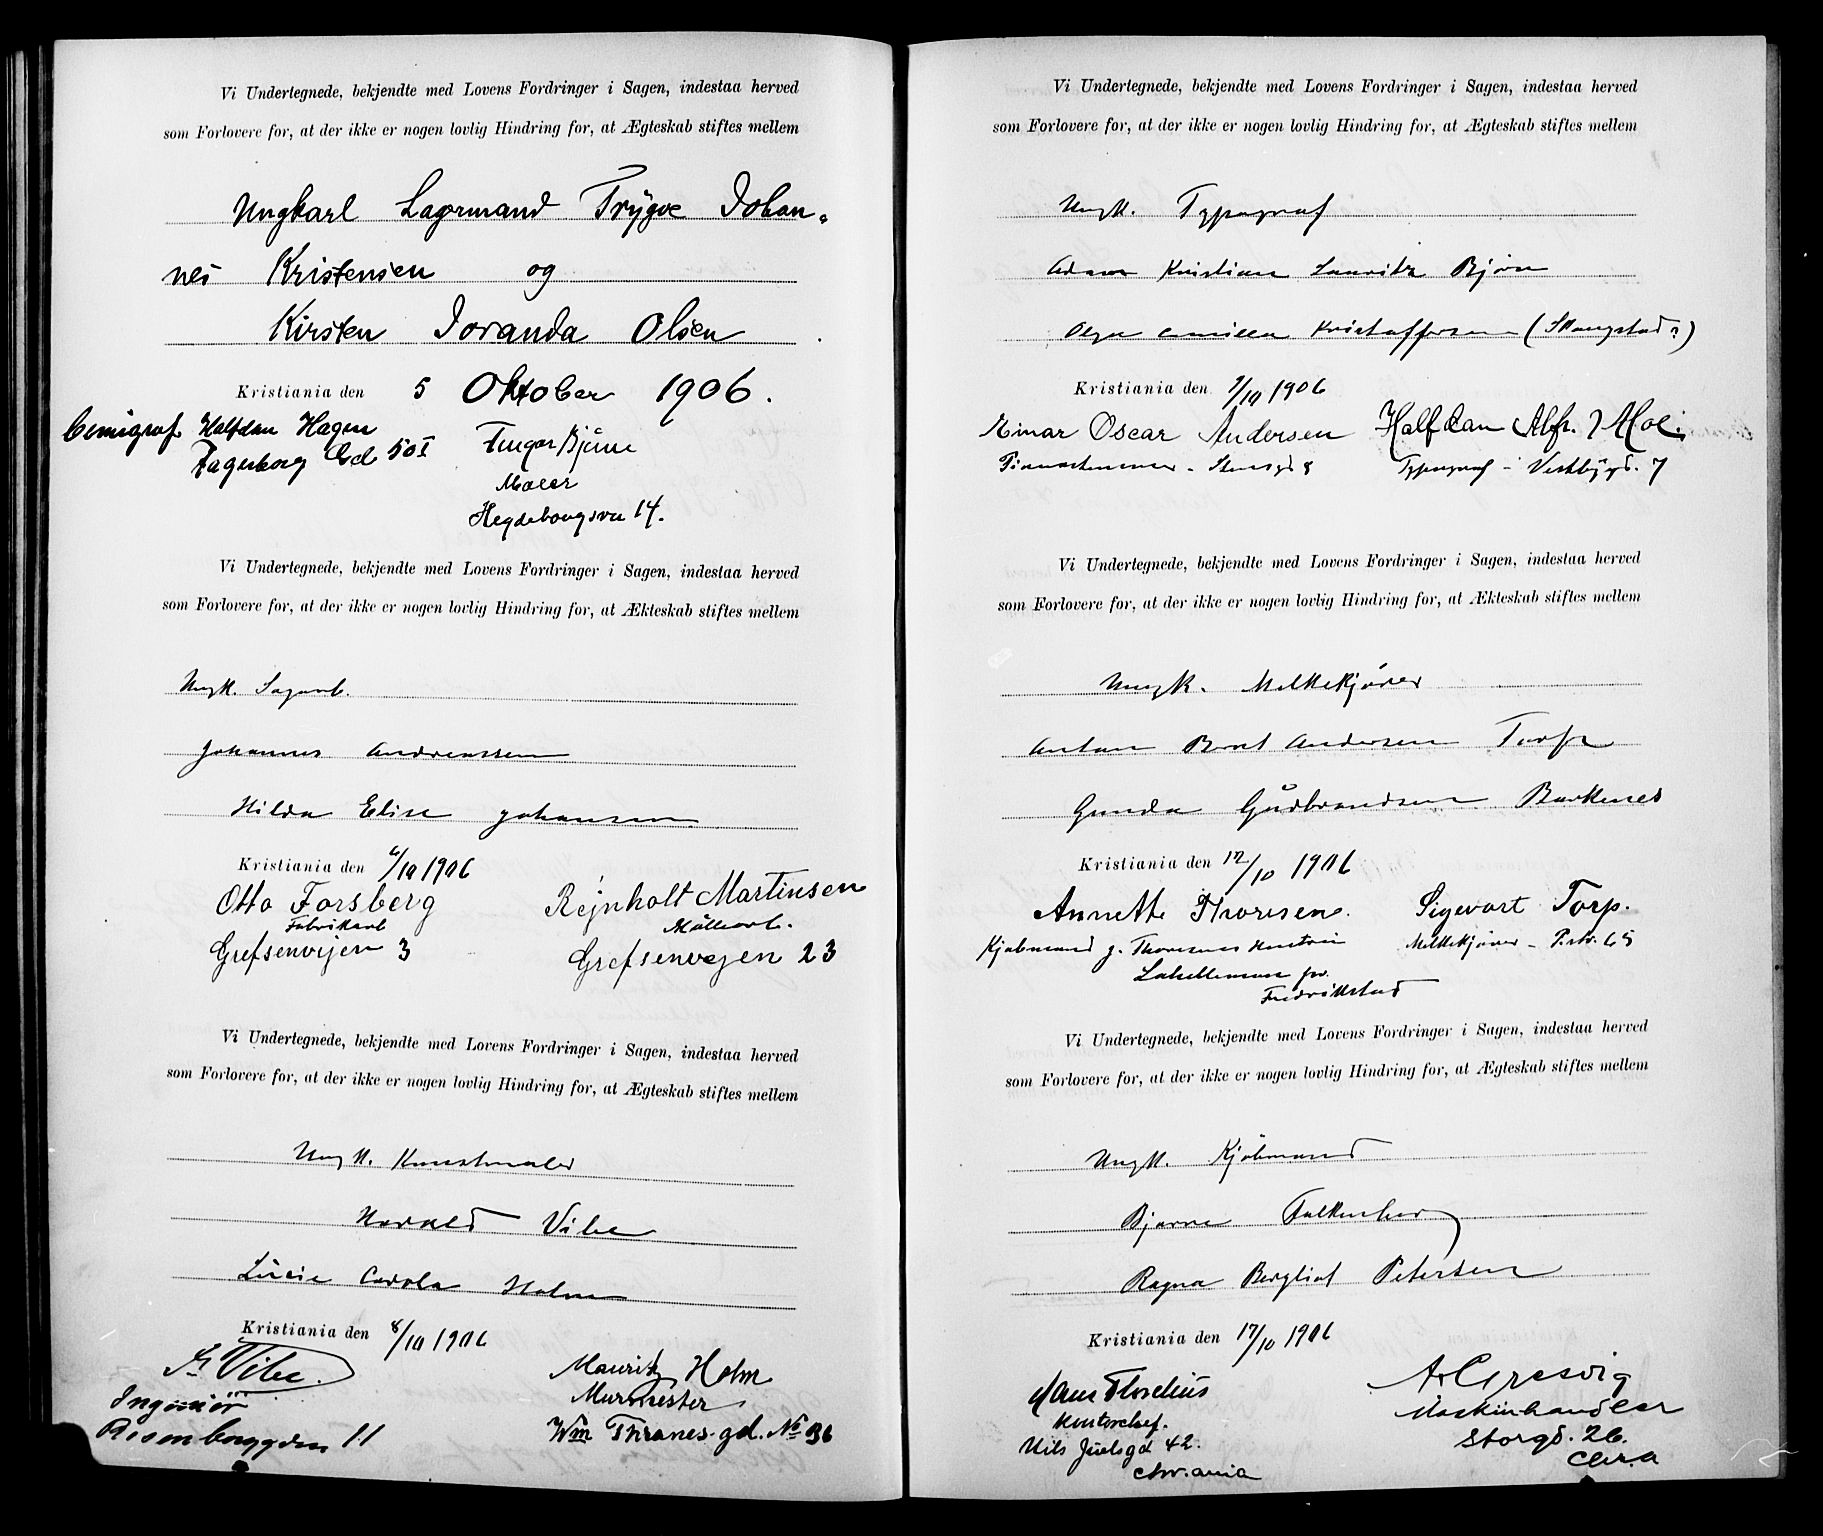 Vi Undertegnede, bekjendte med Lovens Fordringer i Sagen, indestaa herved
som Forlovere for, at der ikke er nogen lovlig Hindring for, at Ægteskab stiftes mellem
Ungkarl Lagormand Trygve Johan-
nes Kristensen og
Kirsten Joranda Olsen
Kristiania den 5 Oktober 1906.
Cemigraf Halfdan Hagen
Fagerborg Gd 50 I
Bjune
Maler
Hegdehaugsvn 14.
Vi Undertegnede, bekjendte med Lovens Fordringer i Sagen, indestaa herved
som Forlovere for, at der ikke er nogen lovlig Hindring for, at Ækteskab stiftes mellem
Ungk. Sagarb.
Johannes Andreassen
Hilda Elise Johansen
Kristiania den 6/10 1906
Otto Forsberg
Fabrikarb
Grefsenvejen 3
Rejnholt Martinsen
Möllearb.
Grefsenvejen 23
Vi Undertegnede, bekjendte med Lovens Fordringer i Sagen, indestaa herved
som Forlovere for, at der ikke er nogen lovlig Hindring for, at Ægteskab stiftes mellem
Ungk. Kunstmaler
Harald Vibe
Lucie Carola Holm
Kristiania den 8/10 1906
Vibe
Ingeniör
Rosenborggden 11
Mauritz Holm
Murmester
Wm Thranes gd. No 36
Vi Undertegnede, bekjendte med Lovens Fordringer i Sagen, indestaa herved
som Forlovere for, at der ikke er nogen lovlig Hindring for, at Ægteskab stiftes mellem
Ungk. Typograf
Adam Kristian Lauritz Björn
Olga Camilla Kristoffersen (Skaugstad?)
Kristiania den 9/10 1906
Einar Oscar Andersen
Pianostemmer - Stensgd 8
Halfdan Alfr. Moe
Typograf - Vestbygd. 7
Vi Undertegnede, bekjendte med Lovens Fordringer i Sagen, indestaa herved
som Forlovere for, at der ikke er nogen lovlig Hindring for, at Ækteskab stiftes mellem
Ungk. Melkekjörer
Anton Bernt Andersen Torp
Gunda Gudbrandsen Barkenes
Kristiania den 12/10 1906
Annette Thoresen.
Kjøbmand J. Thoresens Hustru
pr.
Fredrikstad
Sigevart Torp.
Melkekjörer - P.str. 65
Vi Undertegnede, bekjendte med Lovens Fordringer i Sagen, indestaa herved
som Forlovere for, at der ikke er nogen lovlig Hindring for, at Ægteskab stiftes mellem
Ungk. Kjöbmand
Bjarne Falkenberg
Ragna Bergliot Petersen
Kristiania den 17/10 1906
Hans Florelius
Kontorchef.
Nils Juelsgd 42.
Chr.ania
A. Gresvig
Maskinhandler
Storgd. 26.
Chr.a